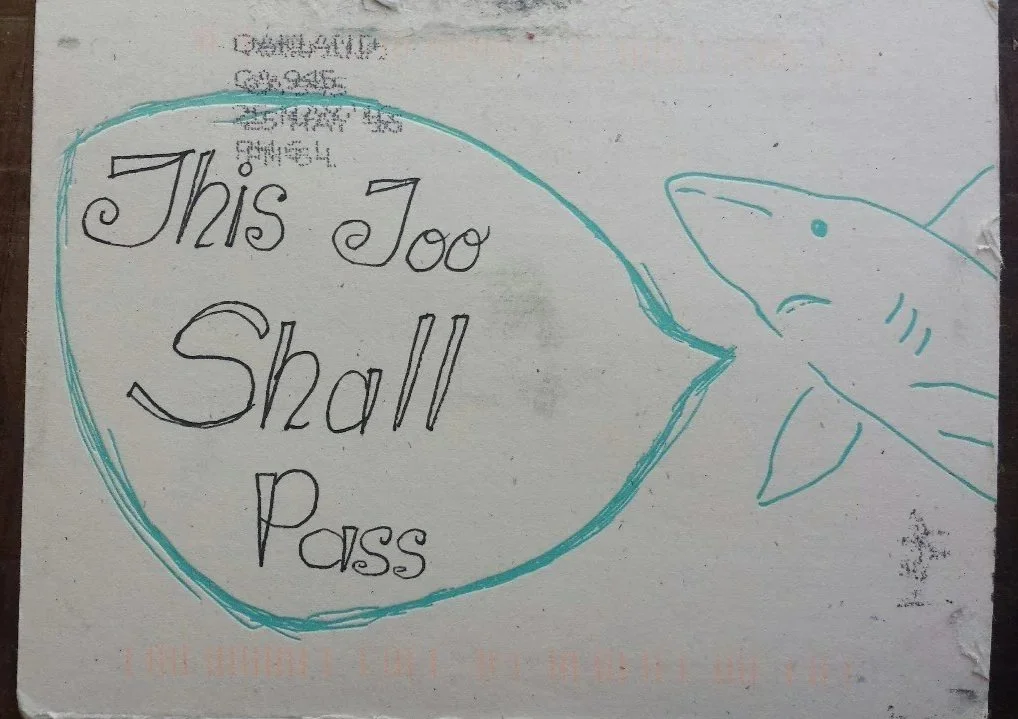 OAKLAND
CA 945
25 MAY '16
PM 6 L
This Too
Shall
Pass